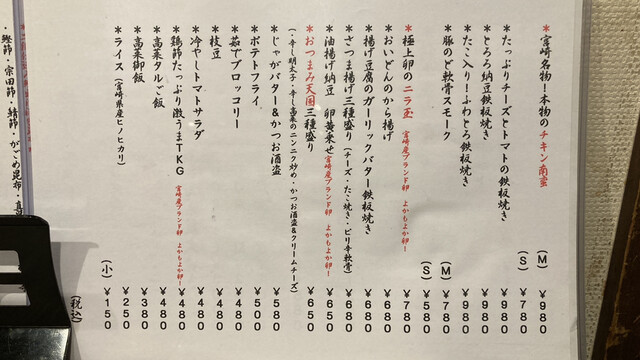 ＊宮崎名物！本物のチキン南蛮 (M) ￥980
(S) ￥780
＊たっぷりチーズとトマトの鉄板焼き ￥980
＊とろろ納豆鉄板焼き ￥980
＊たこ入り！ふわとろ鉄板焼き ￥980
＊豚のど軟骨スモーク (M) ￥780
(S) ￥580
＊極上卵のニラ玉 宮崎産ブランド卵 よかもよか卵ー ￥780
＊おいどんのから揚げ ￥680
＊揚げ豆腐のガーリックバター鉄板焼き ￥680
＊さつま揚げ三種盛り (チーズ・たこ焼き・ピリ辛軟骨) ￥680
＊油揚げ納豆 卵黄乗せ 宮崎産ブランド卵 よかもよか卵ー ￥650
＊おつまみ天国三種盛り ￥650
(・辛し明太子・辛し高菜のニンニク炒め・かつお酒盗&クリームチーズ)
＊じゃがバター&かつお酒盗 ￥580
＊ポテトフライ ￥500
＊茹でブロッコリー ￥480
＊枝豆 ￥480
＊冷やしトマトサラダ ￥480
＊鶏節たっぷり激うまTKG 宮崎産ブランド卵 よかもよか卵ー ￥480
＊高菜タルご飯 ￥480
＊高菜御飯 ￥380
＊ライス (宮崎県産ヒノヒカリ) ￥250
(小) ￥150
(税込)
・鰹節・宗田節・鯖節・がごめ昆布・真